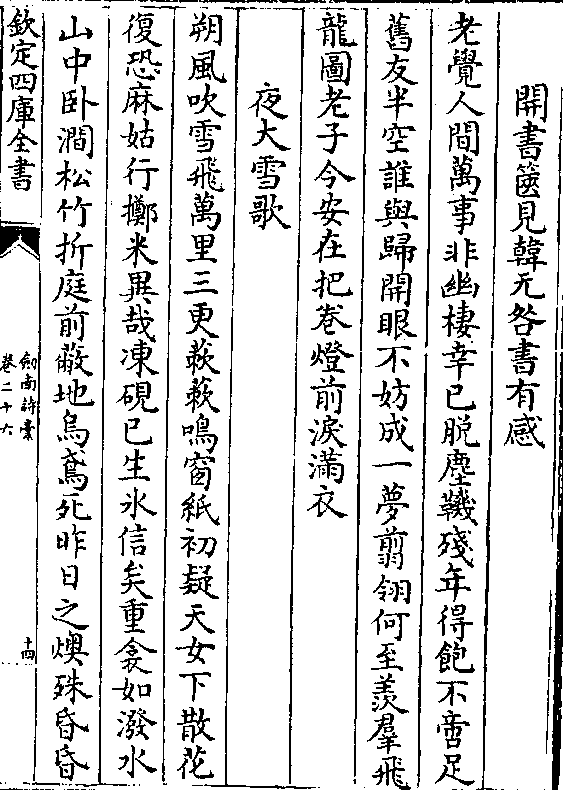 開書篋見韓无咎書有感
老覺人間萬事非幽棲幸已脫塵鞿殘年得飽不啻足
舊友半空誰與歸開眼不妨成一夢翦翎何至羨羣飛
龍圖老子今安在把卷燈前淚滿衣
夜大雪歌
朔風吹雪飛萬里三更蔌蔌鳴窗紙初疑天女下散花
復恐麻姑行擲米異哉凍硯已生冰信矣重衾如潑水
山中卧澗松竹折庭前蔽地烏鳶死昨日之燠殊昏昏
欽定四庫全書
劍南詩藁
卷二十六
十四